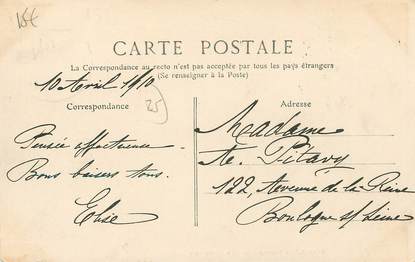 15€
CARTE POSTALE
La Correspondance au recto n'est pas acceptée par tous les pays étrangers
(Se renseigner à la Poste)
10 Avril 1910
Correspondance
25
Adresse
Pensée affectueuse
Bons baisers tous.
Elise
Madame
A. Pitavy
122, Avenue de la Reine
Boulogne s/ Seine